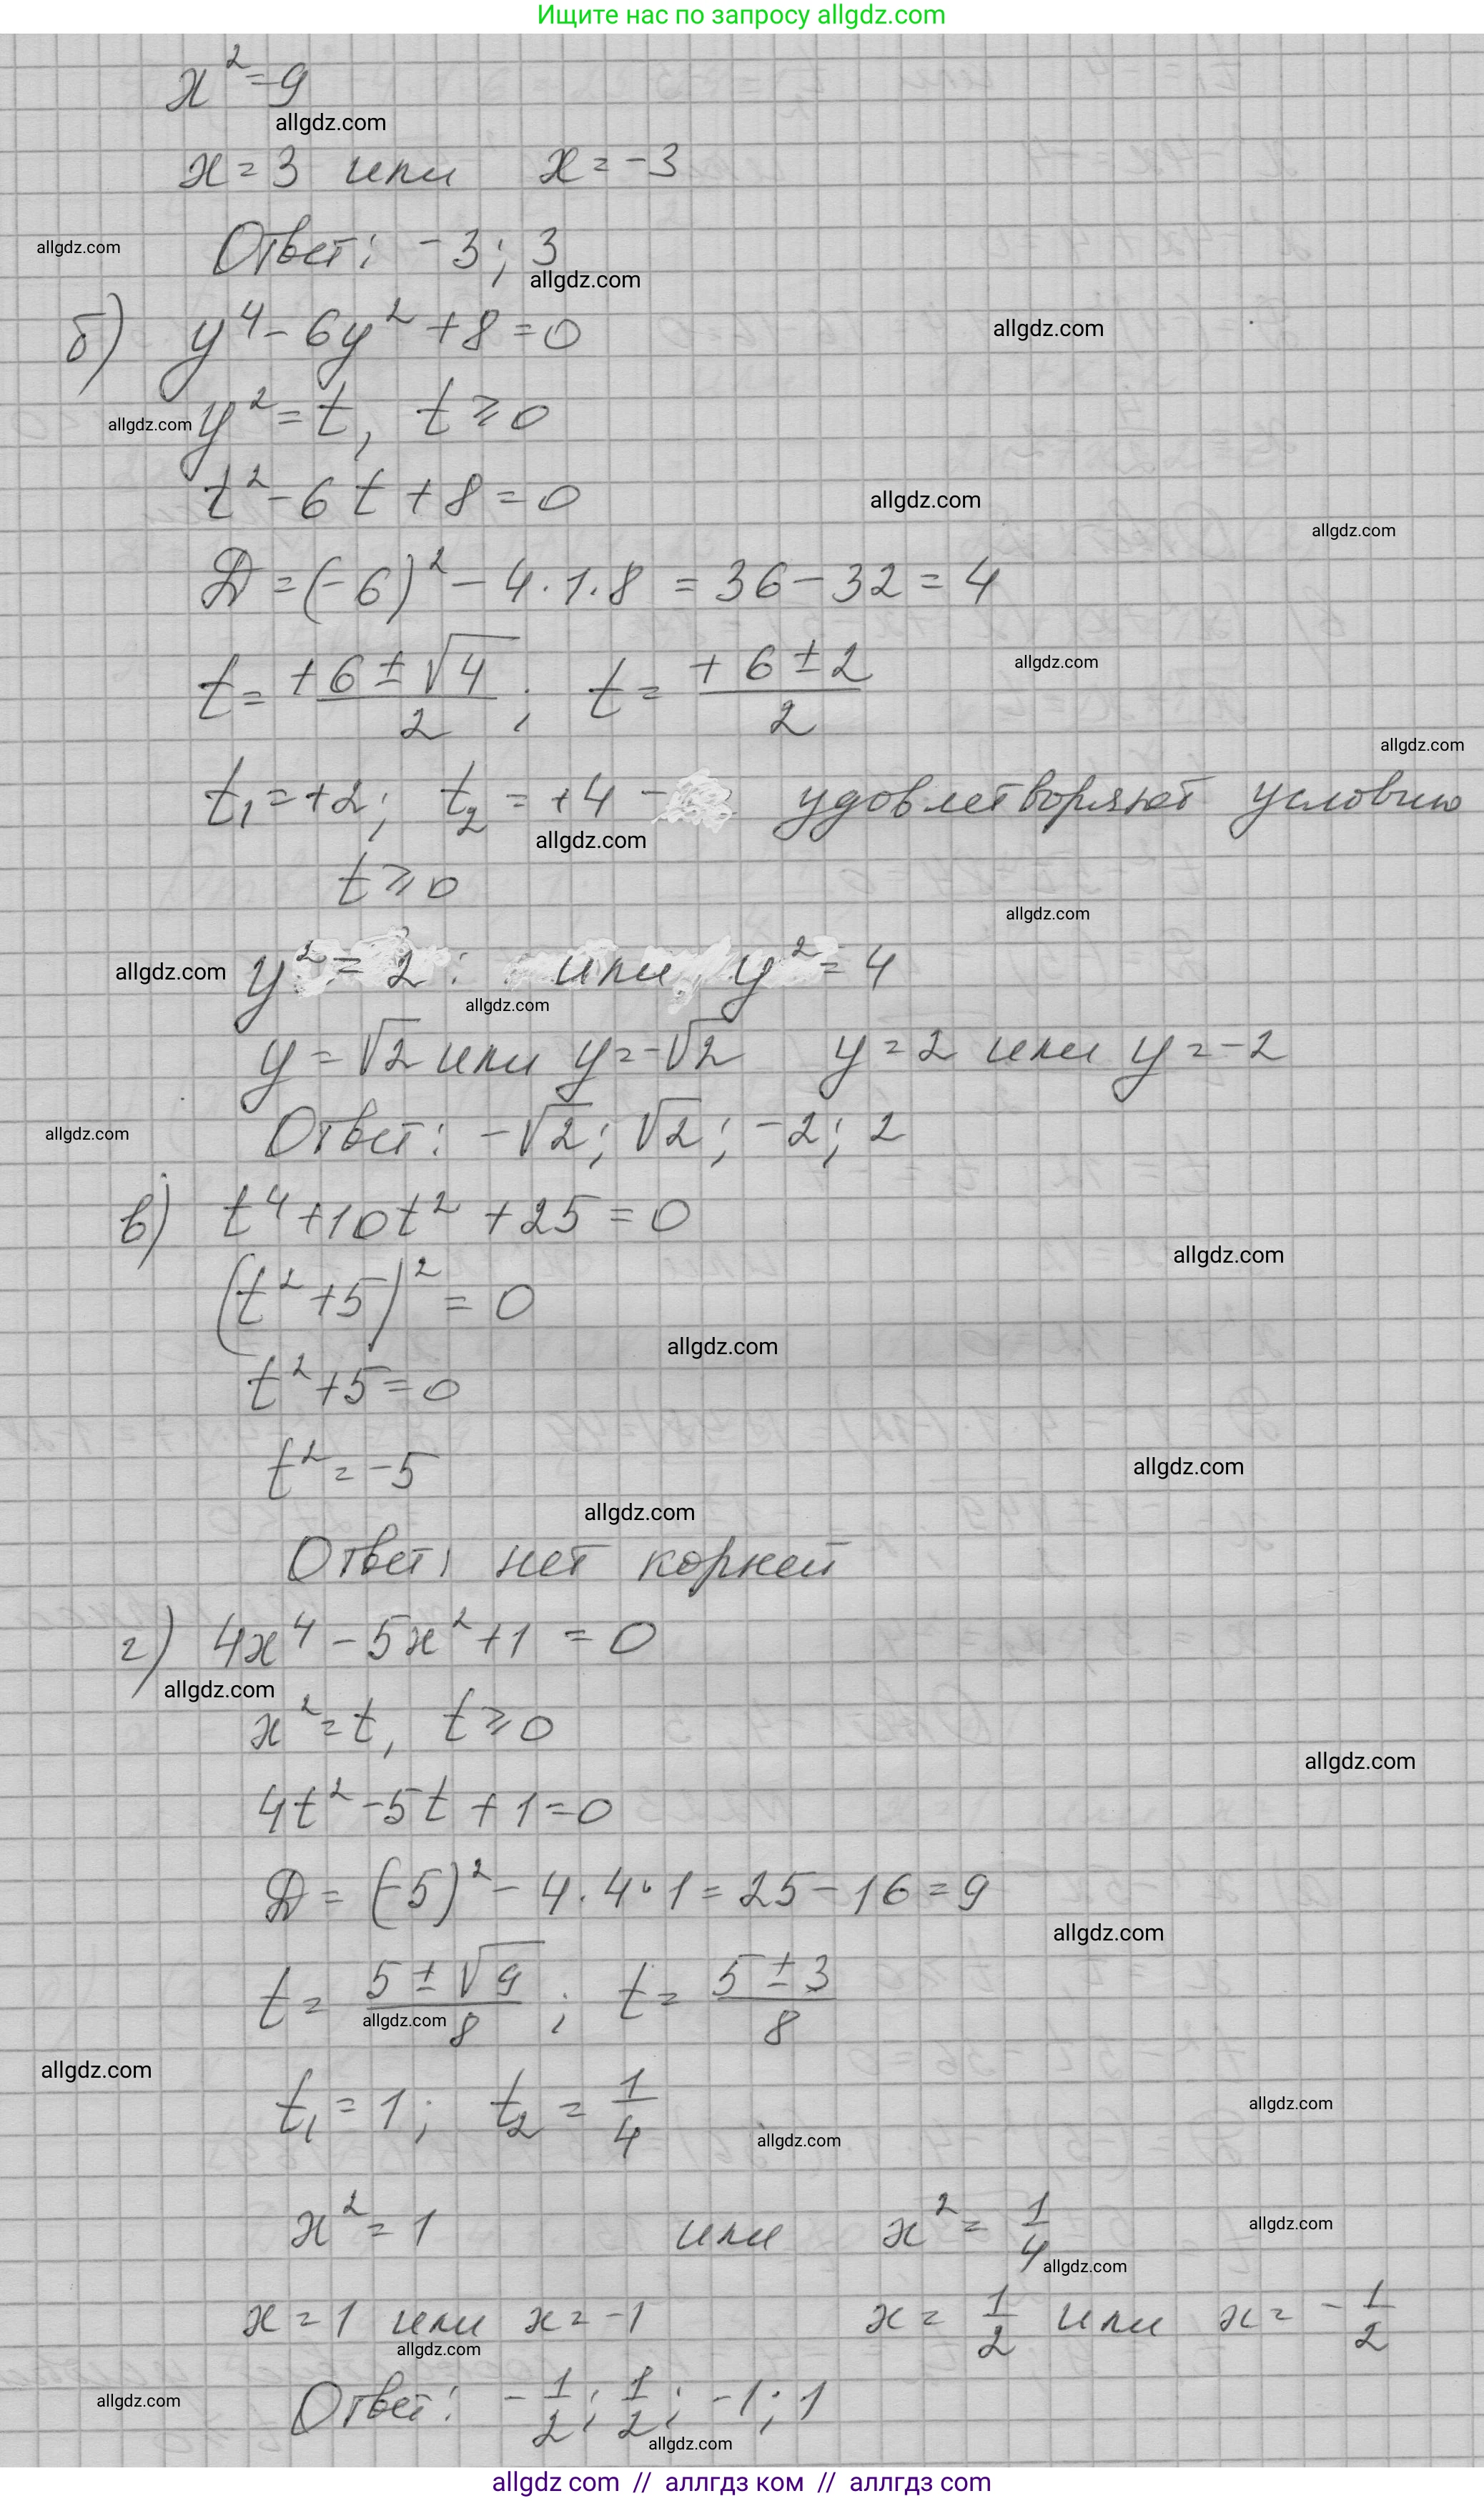 Ищите нас по запросу allgdz.com
x² = 9
allgdz.com
x = 3 или x = -3
Ответ: -3; 3
allgdz.com
allgdz.com
б) y⁴ - 6y² + 8 = 0
allgdz.com
y² = t, t ≥ 0
allgdz.com
t² - 6t + 8 = 0
allgdz.com
allgdz.com
D = (-6)² - 4·1·8 = 36 - 32 = 4
t = (+6 ± √4)/2; t = (+6 ± 2)/2
allgdz.com
allgdz.com
t₁ = +2; t₂ = +4 - удовлетворяют условию
allgdz.com
t ≥ 0
allgdz.com
y² = 2 или y² = 4
allgdz.com
allgdz.com
y = √2 или y = -√2 y = 2 или y = -2
Ответ: -√2; √2; -2; 2
allgdz.com
в) t⁴ + 10t² + 25 = 0
allgdz.com
(t² + 5)² = 0
allgdz.com
t² + 5 = 0
t² = -5
allgdz.com
allgdz.com
Ответ: нет корней
г) 4x⁴ - 5x² + 1 = 0
allgdz.com
x² = t, t ≥ 0
allgdz.com
4t² - 5t + 1 = 0
D = (-5)² - 4·4·1 = 25 - 16 = 9
allgdz.com
t = (5 ± √9)/8; t = (5 ± 3)/8
allgdz.com
allgdz.com
t₁ = 1; t₂ = 1/4
allgdz.com
allgdz.com
x² = 1 или x² = 1/4
allgdz.com
allgdz.com
x = 1 или x = -1 x = 1/2 или x = -1/2
allgdz.com
Ответ: -1/2; 1/2; -1; 1
allgdz.com
allgdz.com
allgdz com // аллгдз ком // аллгдз com